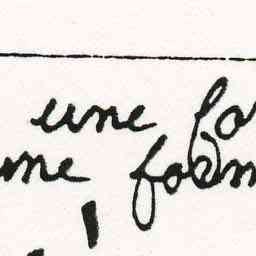 une fo
une form